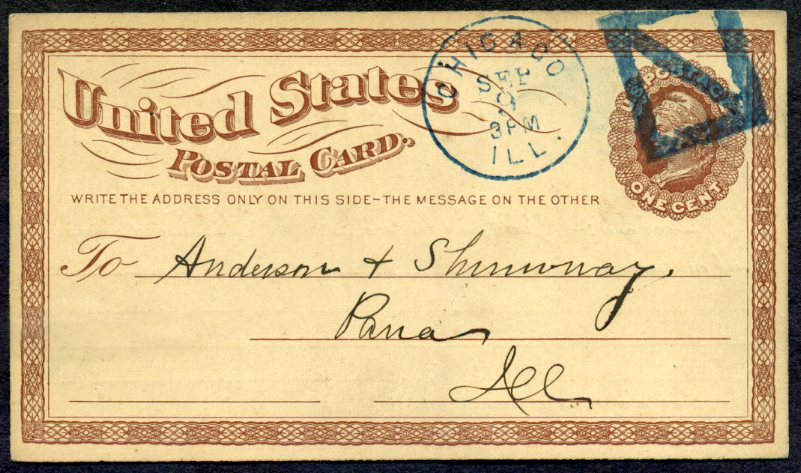 United States
POSTAL CARD.
WRITE THE ADDRESS ONLY ON THIS SIDE–THE MESSAGE ON THE OTHER
CHICAGO
SEP
9
3PM
ILL.
U.S. POSTAGE
ONE CENT
To Anderson + Shumway.
Pana
Ill